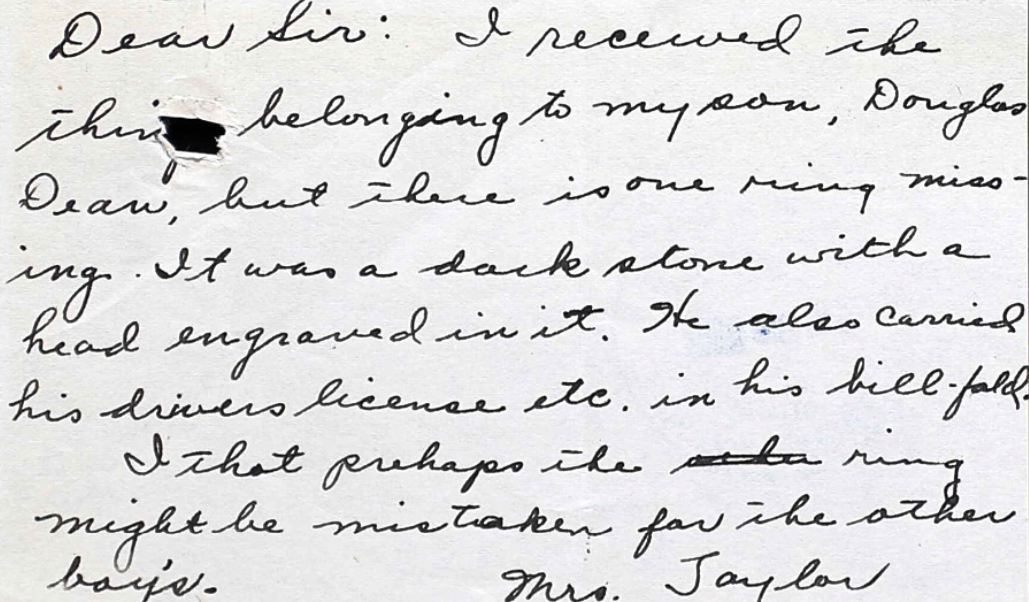 Dear Sir: I received the
thin belonging to my son, Douglas
Dean, but there is one ring miss-
ing. It was a dark stone with a
head engraved in it. He also carried
his drivers license etc. in his bill-fold.
I that prehaps the ring
might be mistaken for the other
boy's. Mrs. Taylor